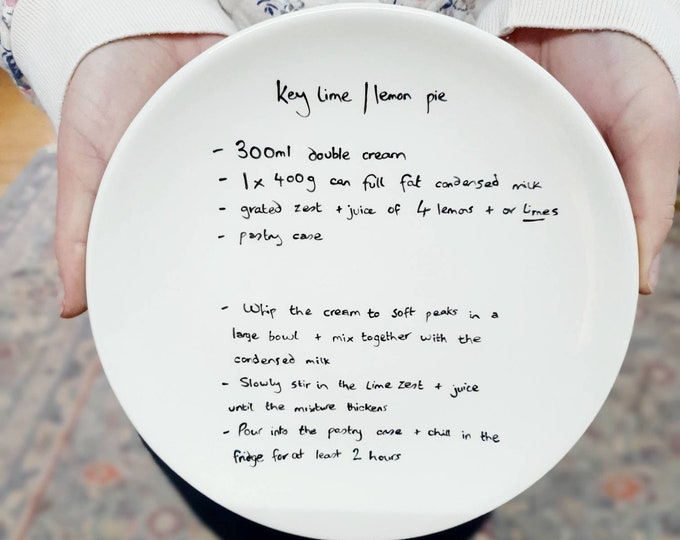 Key lime / lemon pie
- 300ml double cream
- 1x 400g can full fat condensed milk
- grated zest + juice of 4 lemons + or limes
- pastry case
- Whip the cream to soft peaks in a
large bowl + mix together with the
condensed milk
- Slowly stir in the lime zest + juice
until the mixture thickens
- Pour into the pastry case + chill in the
fridge for at least 2 hours